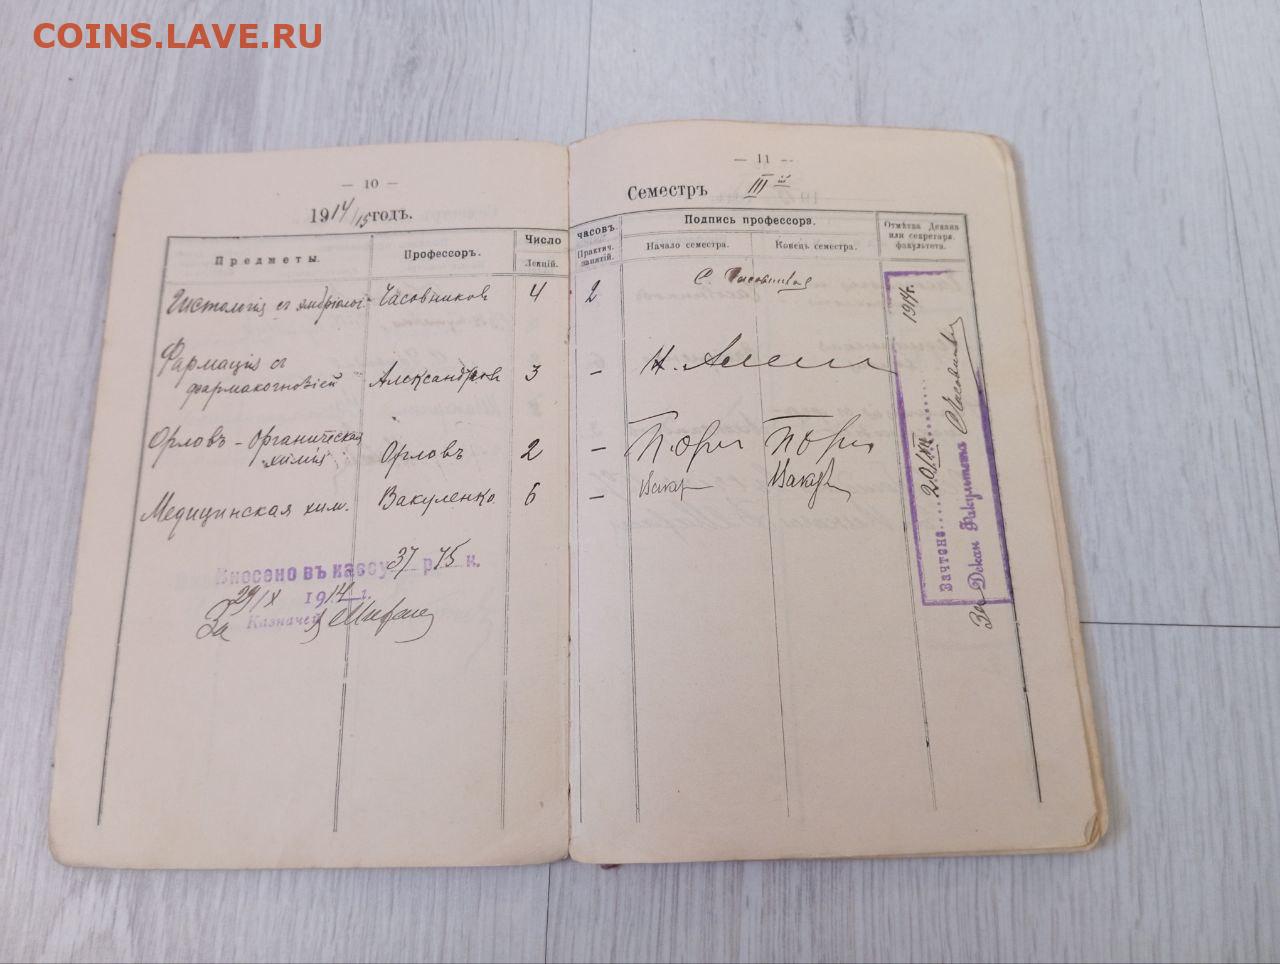 COINS.LAVE.RU
— 10 —
1914/15 годъ.
Предметы.
Профессоръ.
Число
Лекцій.
Гистологія съ эмбріолог.
Часовниковъ
4
Фармація съ
фармакогнозіей
Александровъ
3
Орловъ - Органическая
химія
Орловъ
2
Медицинская хим.
Вакуленко
6
Внесено въ кассу 37 р. 75 к.
29/X 1914 г.
За Казначей
— 11 —
Семестръ III й
часовъ.
Практич. занятій.
Подпись профессора.
Начало семестра.
Конецъ семестра.
Отмѣтка Декана
или секретаря
факультета.
2
С Часовников
—
—
П. Орл
П Орл
—
Вакул
Вакул
Зачтено 20/XII 1914 г.
За Декан Факультета С Часовников